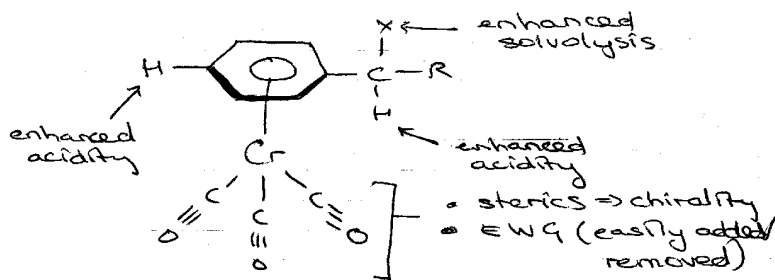 X
enhanced
solvolysis
H
C
R
H
enhanced
acidity
enhanced
acidity
Cr
C
C
C
O
O
O
• sterics ⇒ chirality
• EWG (easily added/
removed)